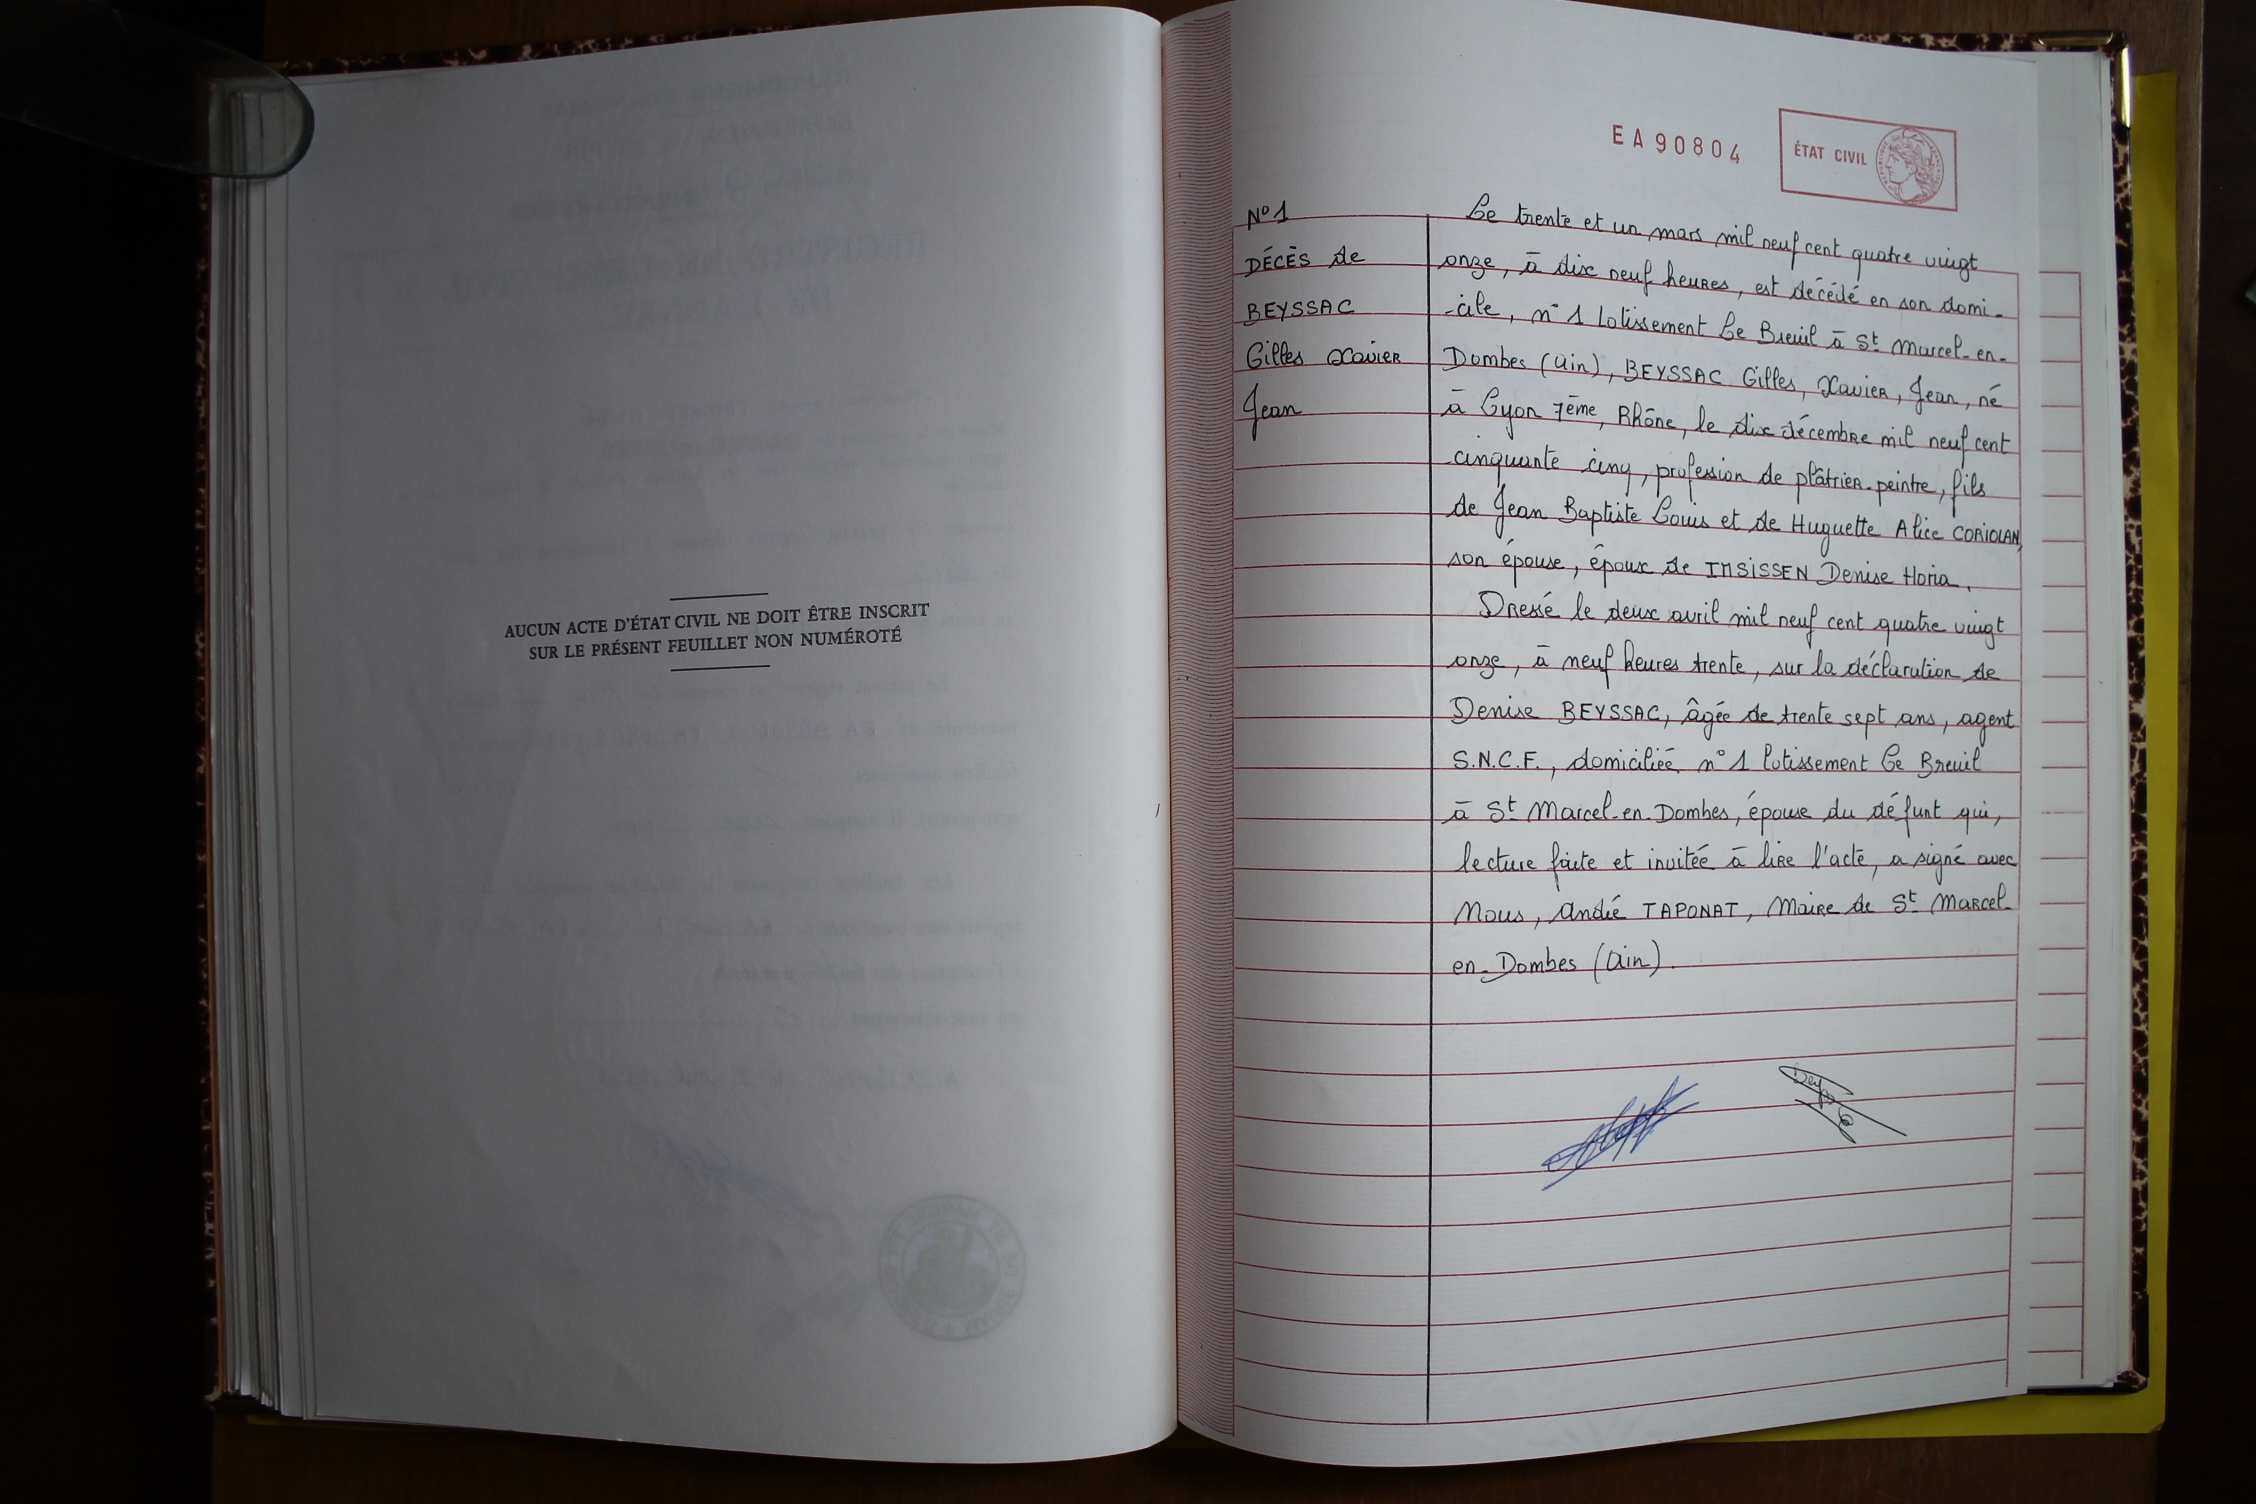 AUCUN ACTE D'ÉTAT CIVIL NE DOIT ÊTRE INSCRIT
SUR LE PRÉSENT FEUILLET NON NUMÉROTÉ
EA90804
ÉTAT CIVIL
N° 1
DÉCÈS de
BEYSSAC
Gilles Xavier
Jean
Le trente et un mars mil neuf cent quatre vingt
onze, à dix neuf heures, est décédé en son domi-
-cile, n° 1 Lotissement Le Breuil à St Marcel-en-
Dombes (Ain), BEYSSAC Gilles, Xavier, Jean, né
à Lyon 7ème, Rhône, le dix décembre mil neuf cent
cinquante cinq, profession de plâtrier-peintre, fils
de Jean Baptiste Louis et de Huguette Alice CORIOLAN,
son épouse, époux de IMSISSEN Denise Horia.
Dressé le deux avril mil neuf cent quatre vingt
onze, à neuf heures trente, sur la déclaration de
Denise BEYSSAC, âgée de trente sept ans, agent
S.N.C.F., domiciliée n° 1 lotissement Le Breuil
à St Marcel-en-Dombes, épouse du défunt qui,
lecture faite et invitée à lire l'acte, a signé avec
Nous, André TAPONAT, Maire de St Marcel-
en-Dombes (Ain).